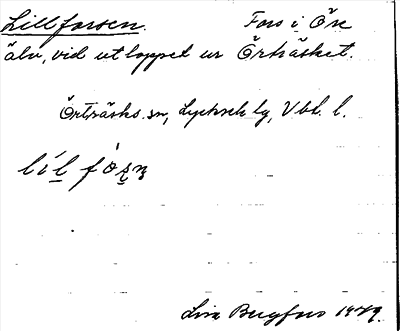 Lillforsen. Fors i Öre
älv, vid utloppet ur Örträsket.
Örträsks sn, Lycksele lg, Vbt. l.
Lisa Bergfors 1949.